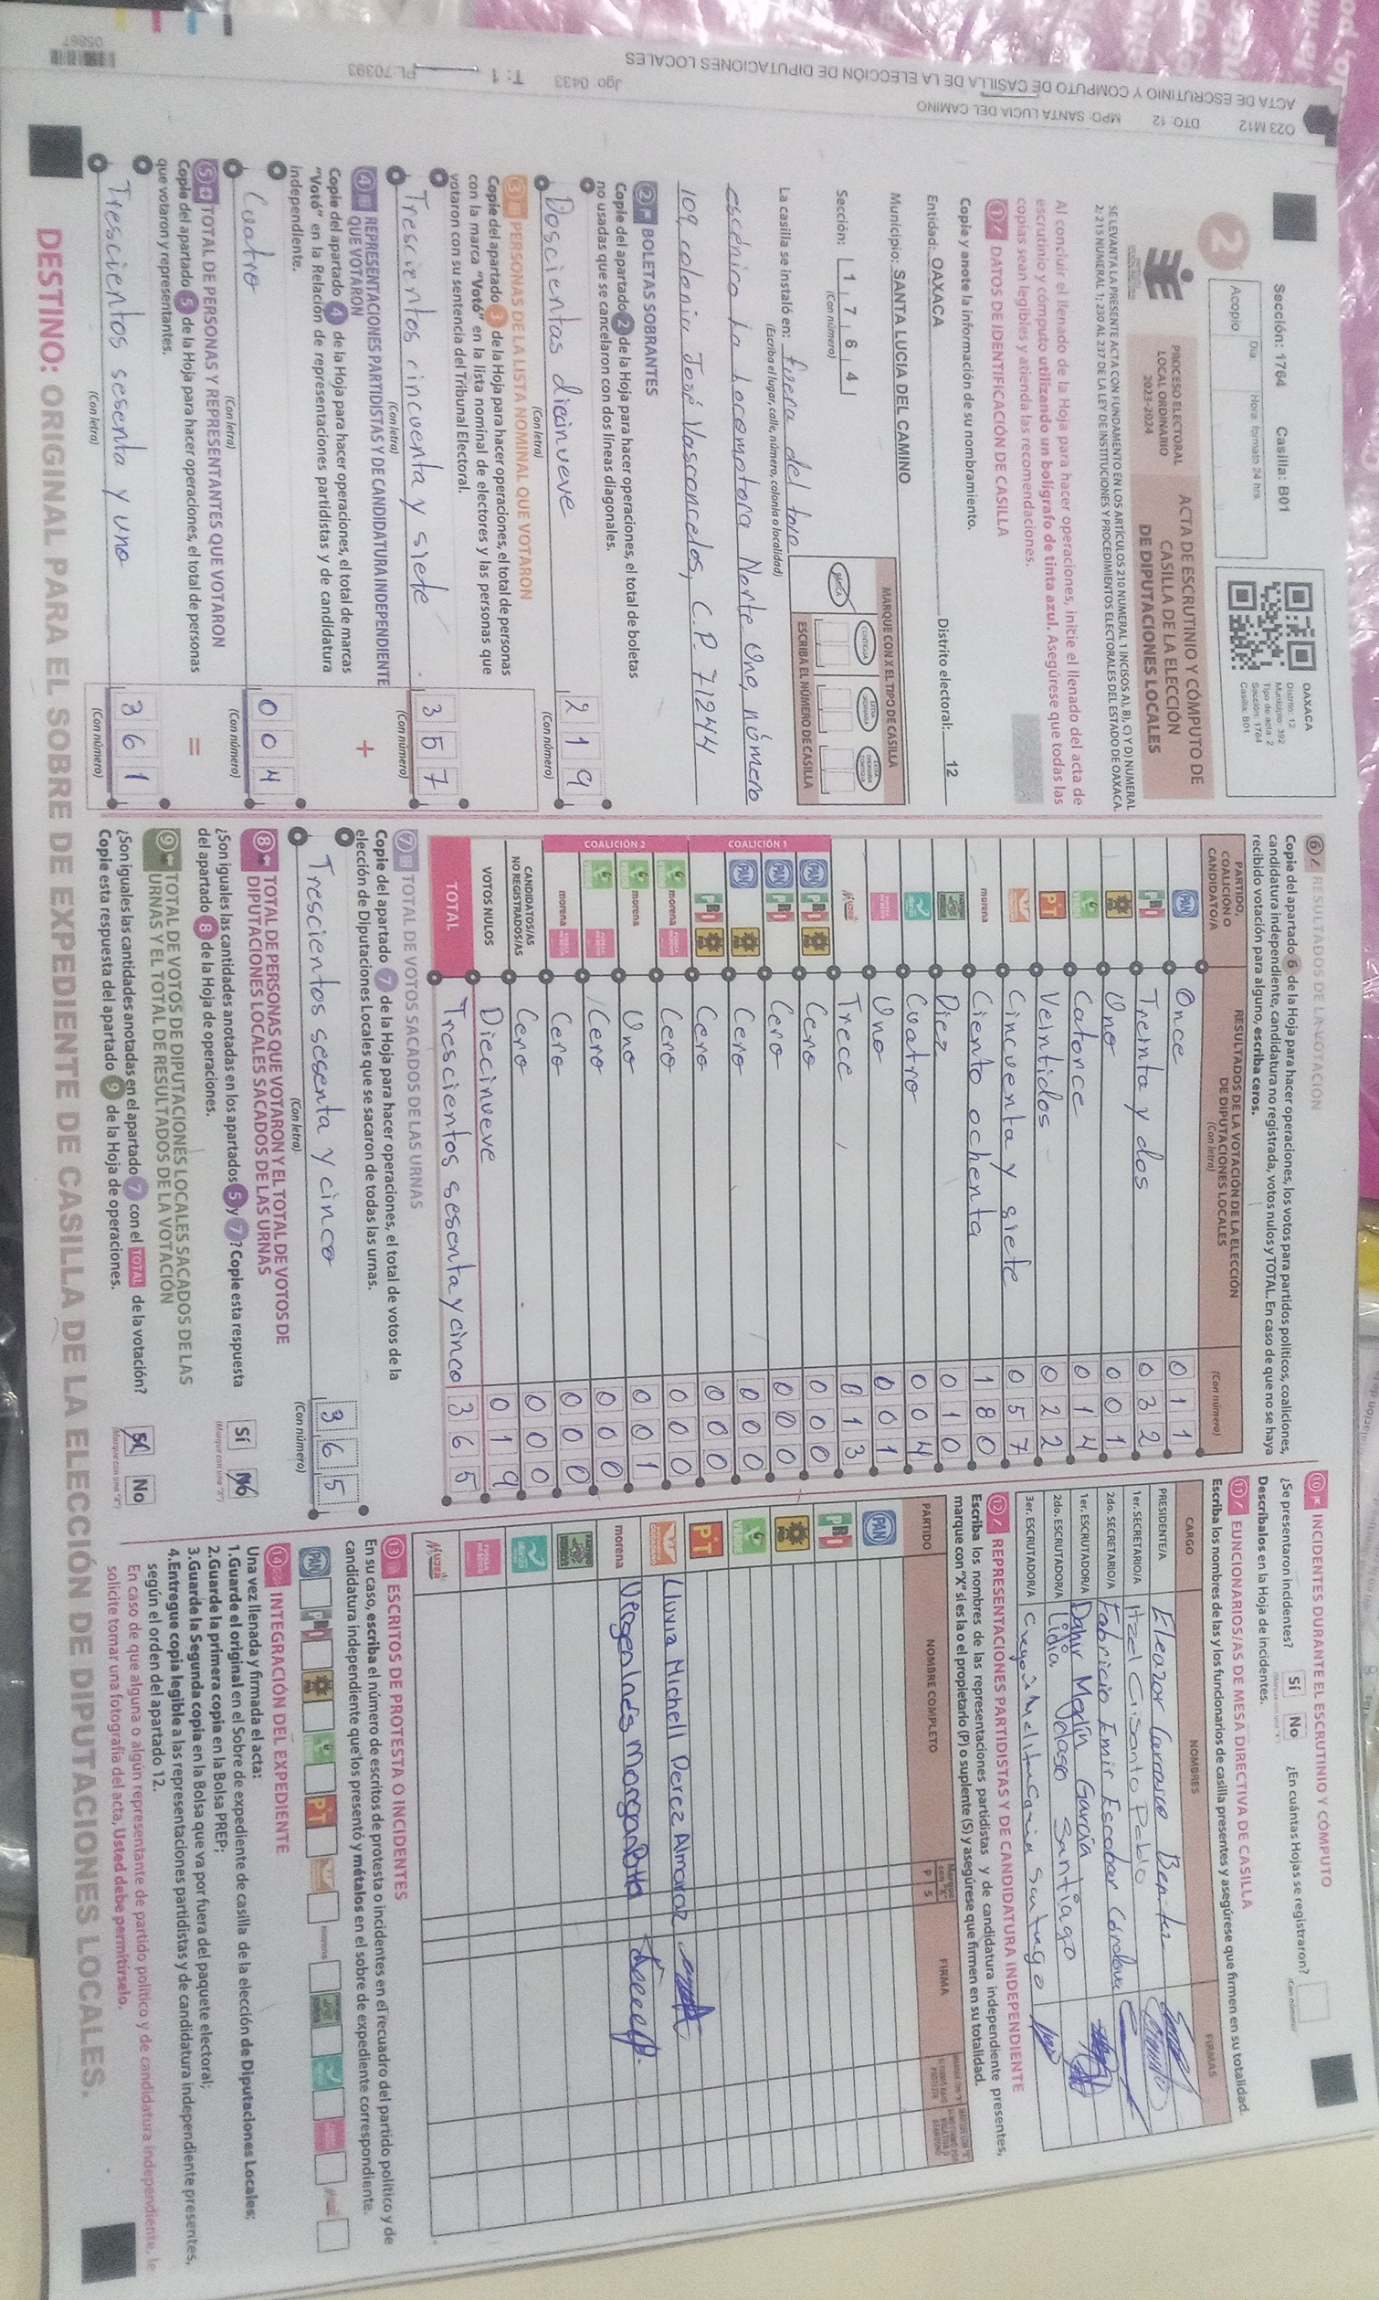 023 M12 DTO: 12 MPO: SANTA LUCIA DEL CAMINO
ACTA DE ESCRUTINIO Y COMPUTO DE CASILLA DE LA ELECCIÓN DE DIPUTACIONES LOCALES
Jgo: 0433 T: 1 PL: 70393
05867
Sección: 1764 Casilla: B01
2
Acopio
Día
Hora: formato 24 hrs.
OAXACA
Distrito: 12
Municipio: 392
Tipo de acta: 2
Sección: 1764
Casilla: B01
PROCESO ELECTORAL
LOCAL ORDINARIO
2023-2024
ACTA DE ESCRUTINIO Y CÓMPUTO DE
CASILLA DE LA ELECCIÓN
DE DIPUTACIONES LOCALES
SE LEVANTA LA PRESENTE ACTA CON FUNDAMENTO EN LOS ARTÍCULOS 210 NUMERAL 1 INCISOS A), B), C) Y D) NUMERAL
2; 215 NUMERAL 1; 230 AL 237 DE LA LEY DE INSTITUCIONES Y PROCEDIMIENTOS ELECTORALES DEL ESTADO DE OAXACA.
Al concluir el llenado de la Hoja para hacer operaciones, inicie el llenado del acta de
escrutinio y cómputo utilizando un bolígrafo de tinta azul. Asegúrese que todas las
copias sean legibles y atienda las recomendaciones.
1 DATOS DE IDENTIFICACIÓN DE CASILLA
Copie y anote la información de su nombramiento.
Entidad: OAXACA Distrito electoral: 12
Municipio: SANTA LUCIA DEL CAMINO
Sección: 1 7 6 4
(Con número)
MARQUE CON X EL TIPO DE CASILLA
BÁSICA
CONTIGUA
ESCRIBA EL NÚMERO DE CASILLA
La casilla se instaló en: fuera del foro
(Escriba el lugar, calle, número, colonia o localidad)
escénico la locomotora Norte Uno, número
109, colonia José Vasconcelos, C.P. 71244
2 BOLETAS SOBRANTES
Copie del apartado 2 de la Hoja para hacer operaciones, el total de boletas
no usadas que se cancelaron con dos líneas diagonales.
Doscientas diecinueve 2 1 9
(Con letra) (Con número)
3 PERSONAS DE LA LISTA NOMINAL QUE VOTARON
Copie del apartado 3 de la Hoja para hacer operaciones, el total de personas
con la marca "Votó" en la lista nominal de electores y las personas que
votaron con su sentencia del Tribunal Electoral.
Trescientos cincuenta y siete 3 5 7
(Con letra) (Con número)
4 REPRESENTACIONES PARTIDISTAS Y DE CANDIDATURA INDEPENDIENTE
QUE VOTARON
+
Copie del apartado 4 de la Hoja para hacer operaciones, el total de marcas
"Votó" en la Relación de representaciones partidistas y de candidatura
independiente.
Cuatro 0 0 4
(Con letra) (Con número)
5 TOTAL DE PERSONAS Y REPRESENTANTES QUE VOTARON
=
Copie del apartado 5 de la Hoja para hacer operaciones, el total de personas
que votaron y representantes.
Trescientos sesenta y uno 3 6 1
(Con letra) (Con número)
6 RESULTADOS DE LA VOTACIÓN
Copie del apartado 6 de la Hoja para hacer operaciones, los votos para partidos políticos, coaliciones,
candidatura independiente, candidatura no registrada, votos nulos y TOTAL. En caso de que no se haya
recibido votación para alguno, escriba ceros.
PARTIDO,
COALICIÓN O
CANDIDATO/A
RESULTADOS DE LA VOTACIÓN DE LA ELECCIÓN
DE DIPUTACIONES LOCALES
(Con letra)
(Con número)
PAN Once 0 1 1
PRI Treinta y dos 0 3 2
Uno 0 0 1
Catorce 0 1 4
PT Veintidos 0 2 2
Cincuenta y siete 0 5 7
morena Ciento ochenta 1 8 0
Diez 0 1 0
Cuatro 0 0 4
Uno 0 0 1
Mujer Trece 0 1 3
COALICIÓN 1
PAN PRI Cero 0 0 0
PAN PRI Cero 0 0 0
PAN Cero 0 0 0
PRI Cero 0 0 0
COALICIÓN 2
morena Cero 0 0 0
morena Uno 0 0 1
Cero 0 0 0
morena Cero 0 0 0
CANDIDATOS/AS
NO REGISTRADOS/AS Cero 0 0 0
VOTOS NULOS Diecinueve 0 1 9
TOTAL Trescientos sesenta y cinco 3 6 5
7 TOTAL DE VOTOS SACADOS DE LAS URNAS
Copie del apartado 7 de la Hoja para hacer operaciones, el total de votos de la
elección de Diputaciones Locales que se sacaron de todas las urnas.
Trescientos sesenta y cinco 3 6 5
(Con letra) (Con número)
8 TOTAL DE PERSONAS QUE VOTARON Y EL TOTAL DE VOTOS DE
DIPUTACIONES LOCALES SACADOS DE LAS URNAS
¿Son iguales las cantidades anotadas en los apartados 5 y 7? Copie esta respuesta
del apartado 8 de la Hoja de operaciones.
Sí No
9 TOTAL DE VOTOS DE DIPUTACIONES LOCALES SACADOS DE LAS
URNAS Y EL TOTAL DE RESULTADOS DE LA VOTACIÓN
¿Son iguales las cantidades anotadas en el apartado 7 con el TOTAL de la votación?
Copie esta respuesta del apartado 9 de la Hoja de operaciones.
Sí No
10 INCIDENTES DURANTE EL ESCRUTINIO Y CÓMPUTO
¿Se presentaron incidentes? Sí No ¿En cuántas Hojas se registraron?
Descríbalos en la Hoja de incidentes.
11 FUNCIONARIOS/AS DE MESA DIRECTIVA DE CASILLA
Escriba los nombres de las y los funcionarios de casilla presentes y asegúrese que firmen en su totalidad.
CARGO NOMBRES FIRMAS
PRESIDENTE/A Eleazar Carrasco
1er. SECRETARIO/A Itzel Crisanto Pablo
2do. SECRETARIO/A Fabricio Emir Escobar Córdova
1er. ESCRUTADOR/A Marín García
2do. ESCRUTADOR/A Lidia Santiago
3er. ESCRUTADOR/A Santiago
12 REPRESENTACIONES PARTIDISTAS Y DE CANDIDATURA INDEPENDIENTE
Escriba los nombres de las representaciones partidistas y de candidatura independiente presentes,
marque con "X" si es la o el propietario (P) o suplente (S) y asegúrese que firmen en su totalidad.
PARTIDO NOMBRE COMPLETO P S FIRMA
PAN
PRI
PT
Lluvia Michell Perez Almaraz
morena
Mujer
13 ESCRITOS DE PROTESTA O INCIDENTES
En su caso, escriba el número de escritos de protesta o incidentes en el recuadro del partido político y de
candidatura independiente que los presentó y métalos en el sobre de expediente correspondiente.
PAN PRI PT morena
14 INTEGRACIÓN DEL EXPEDIENTE
Una vez llenada y firmada el acta:
1.Guarde el original en el Sobre de expediente de casilla de la elección de Diputaciones Locales;
2.Guarde la primera copia en la Bolsa PREP;
3.Guarde la Segunda copia en la Bolsa que va por fuera del paquete electoral;
4.Entregue copia legible a las representaciones partidistas y de candidatura independiente presentes,
según el orden del apartado 12.
En caso de que alguna o algún representante de partido político y de candidatura independiente, le
solicite tomar una fotografía del acta, Usted debe permitírselo.
DESTINO: ORIGINAL PARA EL SOBRE DE EXPEDIENTE DE CASILLA DE LA ELECCIÓN DE DIPUTACIONES LOCALES.